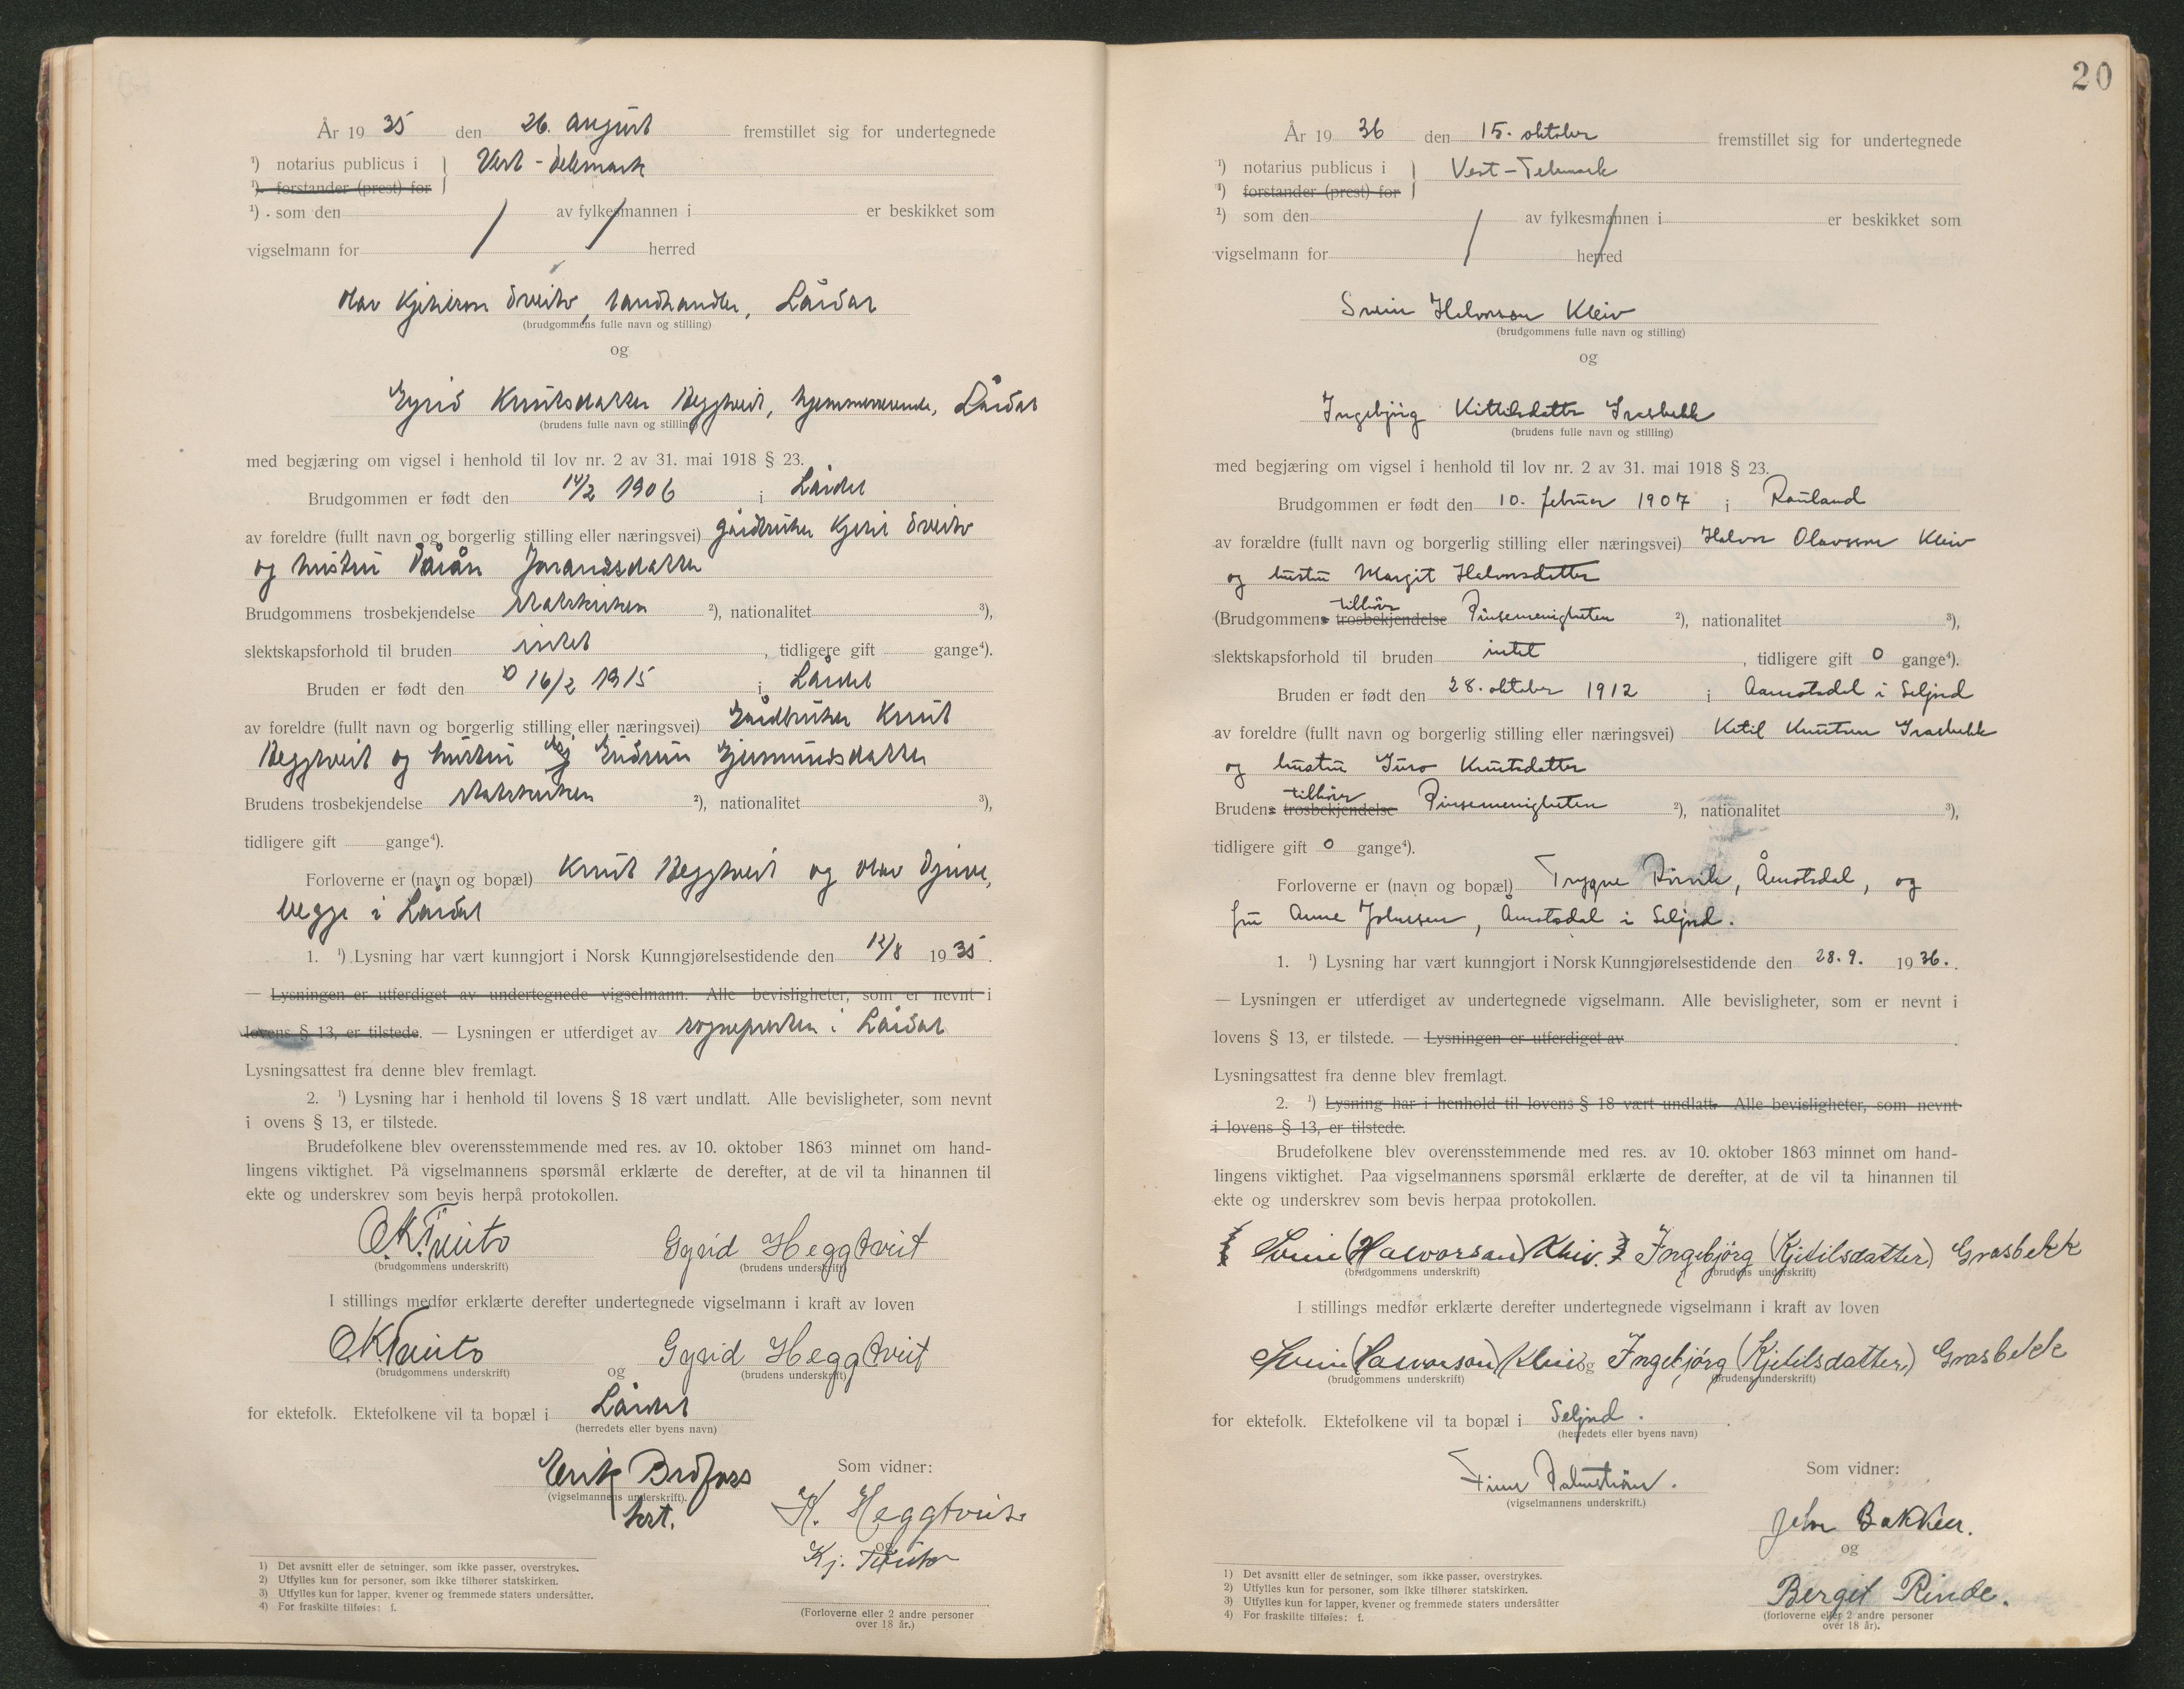 År 19 35 den 26. august fremstillet sig for undertegnede
¹) notarius publicus i Vest-Telemark
¹) forstander (prest) for
¹) som den av fylkesmannen i er beskikket som
vigselmann for herred
Olav Kjetilson Tveito, landhandler, Lårdal
(brudgommens fulle navn og stilling)
og
Gyrid Knutsdatter Heggtveit, hjemmeværende, Lårdal
(brudens fulle navn og stilling)
med begjæring om vigsel i henhold til lov nr. 2 av 31. mai 1918 § 23.
Brudgommen er født den 14/2 1906 i Lårdal
av foreldre (fullt navn og borgerlig stilling eller næringsvei) gårdbruker Kjetil Tveito
og hustru Tårån Jorandsdatter
Brudgommens trosbekjendelse statskirken ²), nationalitet ³),
slektskapsforhold til bruden intet , tidligere gift gange⁴).
Bruden er født den 16/2 1915 i Lårdal
av foreldre (fullt navn og borgerlig stilling eller næringsvei) Gårdbruker Knut
Heggtveit og hustru Gudrun Gjermundsdatter
Brudens trosbekjendelse statskirken ²), nationalitet ³),
tidligere gift gange⁴).
Forloverne er (navn og bopæl) Knut Heggtveit og Olav Djuve,
begge i Lårdal
1. ¹) Lysning har vært kunngjort i Norsk Kunngjørelsestidende den 12/8 1935.
— Lysningen er utferdiget av undertegnede vigselmann. Alle bevisligheter, som er nevnt i
lovens § 13, er tilstede. — Lysningen er utferdiget av sognepresten i Lårdal
Lysningsattest fra denne blev fremlagt.
2. ¹) Lysning har i henhold til lovens § 18 vært undlatt. Alle bevisligheter, som nevnt
i ovens § 13, er tilstede.
Brudefolkene blev overensstemmende med res. av 10. oktober 1863 minnet om hand-
lingens viktighet. På vigselmannens spørsmål erklærte de derefter, at de vil ta hinannen til
ekte og underskrev som bevis herpå protokollen.
O.K. Tveito Gyrid Heggtveit
(brudgommens underskrift) (brudens underskrift)
I stillings medfør erklærte derefter undertegnede vigselmann i kraft av loven
O.K. Tveito og Gyrid Heggtveit
(brudgommens underskrift) (brudens underskrift)
for ektefolk. Ektefolkene vil ta bopæl i Lårdal
(herredets eller byens navn)
Erik Brofoss
(vigselmannens underskrift).
kst.
Som vidner:
K. Heggtveit
og
Kj. Tveito
(Forloverne eller 2 andre personer
over 18 år.)
1) Det avsnitt eller de setninger, som ikke passer, overstrykes.
2) Utfylles kun for personer, som ikke tilhører statskirken.
3) Utfylles kun for lapper, kvener og fremmede staters undersåtter.
4) For fraskilte tilføies: f.
20
År 19 36 den 15. oktober fremstillet sig for undertegnede
¹) notarius publicus i Vest-Telemark
¹) forstander (prest) for
¹) som den av fylkesmannen i er beskikket som
vigselmann for herred
Svein Halvorson Kleiv
(brudgommens fulle navn og stilling)
og
Ingebjørg Kittilsdatter Grasbekk
(brudens fulle navn og stilling)
med begjæring om vigsel i henhold til lov nr. 2 av 31. mai 1918 § 23.
Brudgommen er født den 10. februar 1907 i Rauland
av forældre (fullt navn og borgerlig stilling eller næringsvei) Halvor Olavsson Kleiv
og hustru Margit Halvorsdatter
(Brudgommens trosbekjendelse tilhør Pinsemenigheten ²), nationalitet ³),
slektskapsforhold til bruden intet , tidligere gift 0 gange⁴).
Bruden er født den 28. oktober 1912 i Aamotsdal i Seljord
av foreldre (fullt navn og borgerlig stilling eller næringsvei) Ketil Knutsen Grasbekk
og hustru Guro Knutsdatter
Brudens trosbekjendelse tilhør Pinsemenigheten ²), nationalitet ³),
tidligere gift 0 gange⁴).
Forloverne er (navn og bopæl) Trygve , Åmotsdal, og
fru Anne Johnsen, Åmotsdal i Seljord.
1. ¹) Lysning har vært kunngjort i Norsk Kunngjørelsestidende den 28.9. 1936.
— Lysningen er utferdiget av undertegnede vigselmann. Alle bevisligheter, som er nevnt i
lovens § 13, er tilstede. — Lysningen er utferdiget av .
Lysningsattest fra denne blev fremlagt.
2. ¹) Lysning har i henhold til lovens § 18 vært undlatt. Alle bevisligheter, som nevnt
i lovens § 13, er tilstede.
Brudefolkene blev overensstemmende med res. av 10. oktober 1863 minnet om hand-
lingens viktighet. Paa vigselmannens spørsmål erklærte de derefter, at de vil ta hinannen til
ekte og underskrev som bevis herpaa protokollen.
Svein (Halvorson) Kleiv. Ingebjörg (Kjetilsdatter) Grasbekk
(brudgommens underskrift) (brudens underskrift)
I stillings medfør erklærte derefter undertegnede vigselmann i kraft av loven
Svein (Halvorson) Kleiv og Ingebjörg (Kjetilsdatter) Grasbekk
(brudgommens underskrift) (brudens underskrift)
for ektefolk. Ektefolkene vil ta bopæl i Seljord.
(herredets eller byens navn)
Finn Palmstrøm.
(vigselmannens underskrift.)
Som vidner:
John Bakken.
og
Bergit Rinde.
(forloverne eller 2 andre personer
over 18 år).
1) Det avsnitt eller de setninger, som ikke passer, overstrykes.
2) Utfylles kun for personer, som ikke tilhører statskirken.
3) Utfylles kun for lapper, kvener og fremmede staters undersåtter
4) For fraskilte tilføies: f.